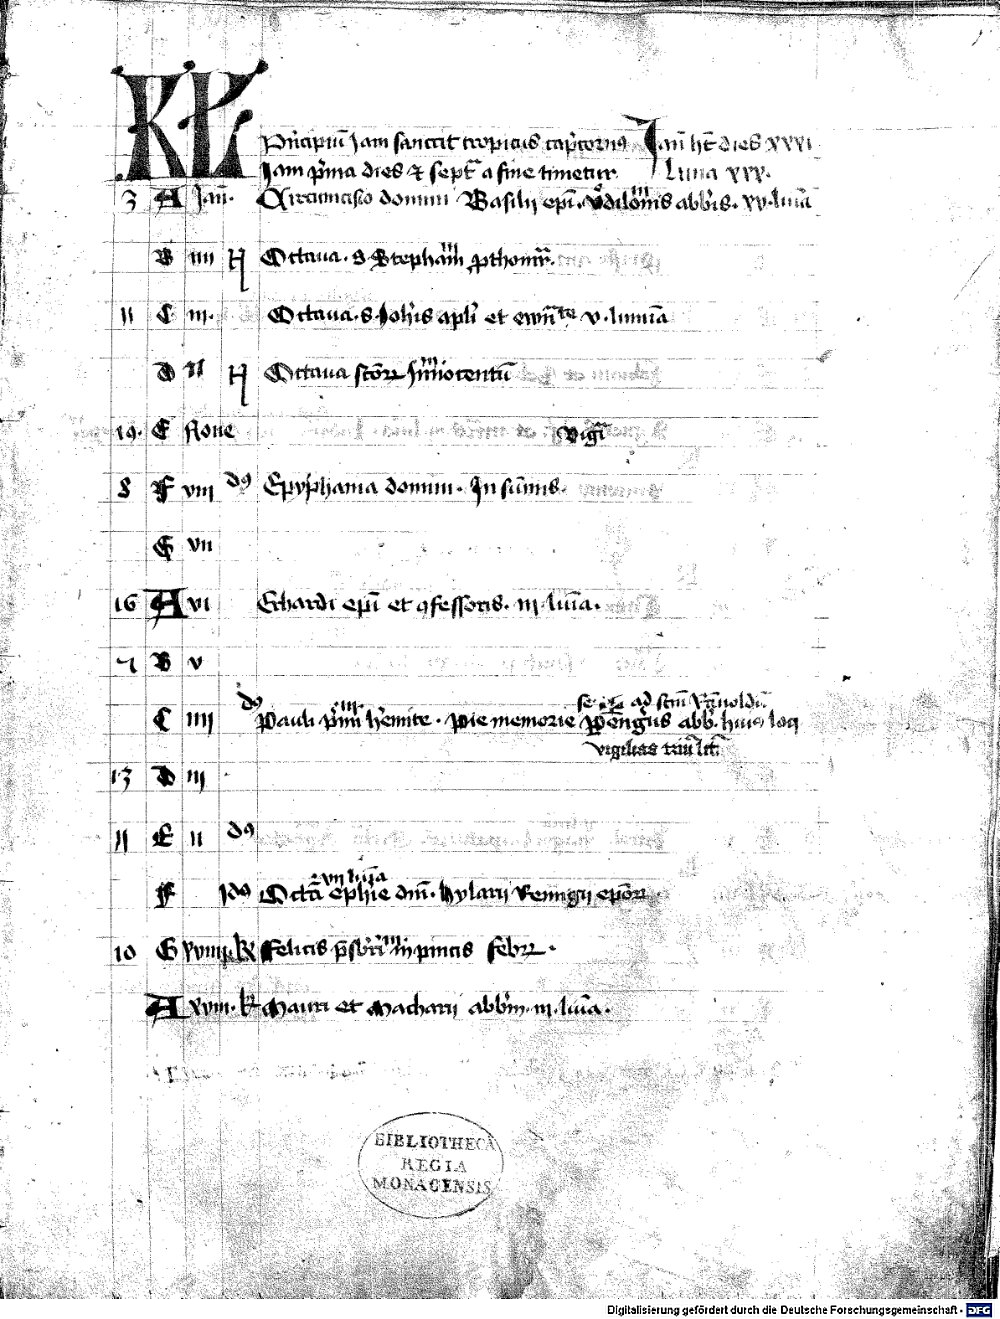 KL
Prīcipiū Jani sanccit tropicus capricornus Januarius hꝫ dies xxxi
Jani prima dies & septīa a fine timetur Luna xxx.
3 A Jan. Circumcisio domini Basilii epi. Odilonis abbis. xv. lumīa
B iiii N Octava. S Stephani prothomr̄.
11 C iii. Octava. S. Johis apli et ewnte v. lumīa
D ii N Octava scōrꝝ Innocentū
19. E None Vigī
8 F viii dꝰ Epyphania domini. In sūmis.
G vii
16 A vi Erhardi epi et ꝯfessoris. iii. luīa.
B v
C iiii dꝰ Pauli primi heremite. Pie memorie abb. huiꝰ loci
vigilias
13 D iii
11 E ii dꝰ
vii luīa
F Idꝰ Octā ephie dni. hylarii Remigii epōrꝝ
10 G xviiii. kꝉ Felicis prsbri in pincis febrꝝ.
A xviii. kꝉ Mauri et Macharii abbm. iii. luīa.
BIBLIOTHECA
REGIA
MONACENSIS
Digitalisierung gefördert durch die Deutsche Forschungsgemeinschaft - DFG